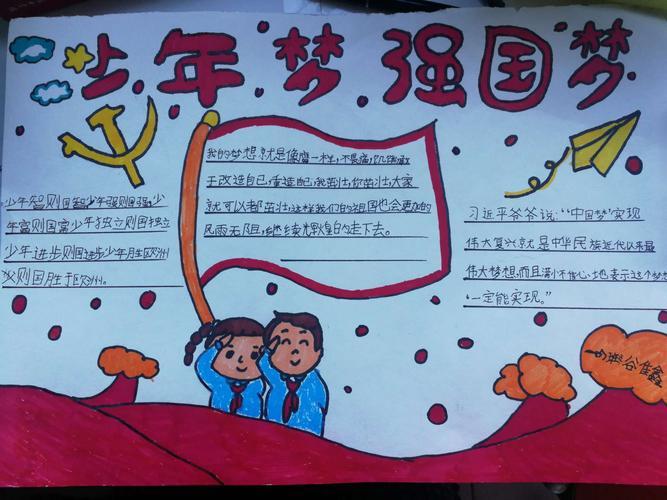 少年梦 强国梦
我的梦想就是像鹰一样，不畏痛，
于改造自己，重造自己，我茁壮，你茁壮，大家
就可以都茁壮，这样我们的祖国也会更加的
风雨无阻，继续辉煌的走下去。
少年智则国智少年强则国强，少
年富则国富少年独立则国独立
少年进步则国进步少年胜欧洲
则国胜于欧洲。
习近平爷爷说：“中国梦”实现
伟大复兴就是中华民族近代以来最
伟大梦想，而且满怀信心地表示这个梦想
“一定能实现。”